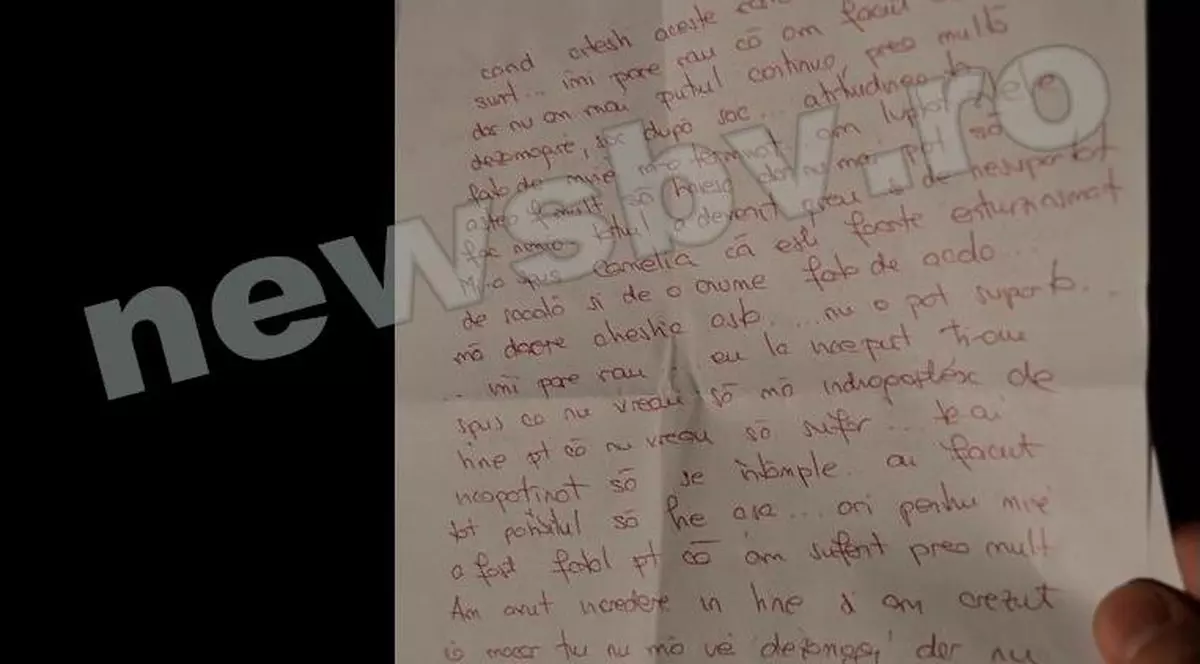 cand citesti aceste
surt... imi pare rau că am facut
dar nu am mai putut continuo, prea multă
dezamagire, soc după soc... atitudinea ta
fata de mine m-a terminat. am luptat
atat mult să traiesc dar nu mai pot să
fac nimic totul a devenit greu si de nesuportat
Mi-a spus Camelia că esti foarte enturziasmat
de scoală si de o anume fata de acolo...
mă doare chestia asta.... nu o pot suporta..
.. imi pare rau. eu la inceput ti-am
spus ca nu vreau să mă indragostesc de
tine pt că nu vreau să sufar... te ai
incapatinat să se intâmple.. ai facut
tot posibilul să fie asa... ori pentru mine
a fost fatal pt că am suferit prea mult
Am avut incredere in tine si am crezut
că macar tu nu mă vei dezamagi dar nu
newsbv.ro